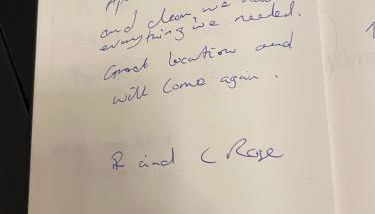 and clean we had
everything we needed.
Great location and
will come again.
R and C Rose